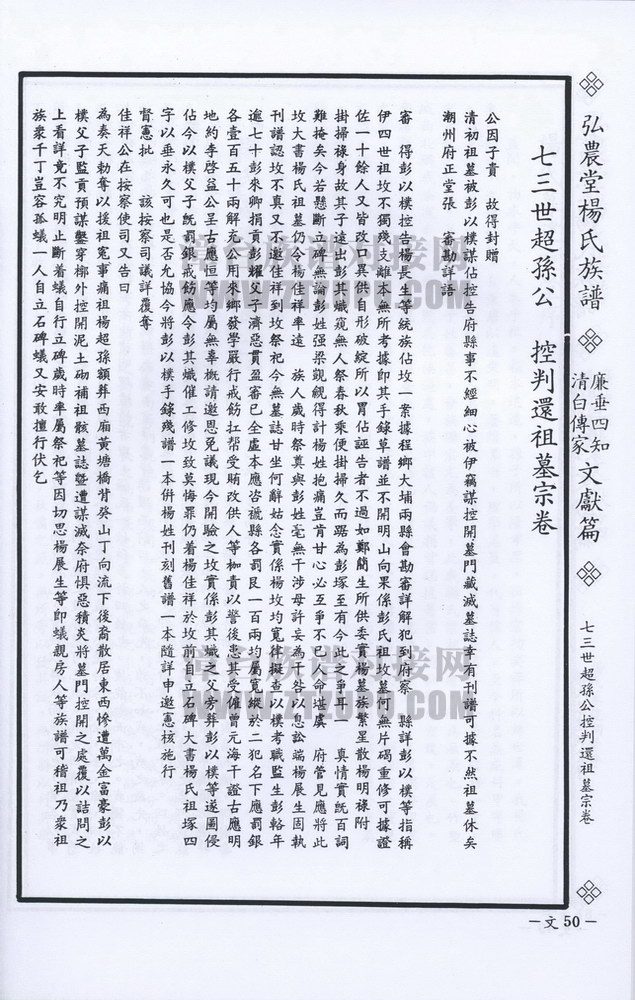 弘農堂楊氏族譜
廉垂四知
清白傳家
文獻篇
七三世超孫公控判還祖墓宗卷
七三世超孫公　控判還祖墓宗卷
公因子貴　故得封贈
清初祖墓被彭以樸謀佔控告府縣事不經細心被伊竊謀控開墓門藏滅墓誌幸有刊譜可據不然祖墓休矣
潮州府正堂張　審勘詳語
審　得彭以樸控告楊長生等統族佔坟一業據程鄉大埔兩縣會勘審詳解犯到府察　縣詳彭以樸等指稱
伊四世祖坟不獨殘支離本無所考據即其手錄草譜並不開明山向果係彭氏祖坟墓何無片碣重修可據證
佐一十餘人又皆改口異供自形破綻所以冒佔誣告者不過如鄭蘭生所供委貴楊墓族繁星散楊明祿附
掛掃祿身故其子遠出彭其熾窺無人祭春秋乘便掛掃久而踞為彭塚至有今此之爭耳一　真情實旣百詞
難掩矣今若懸斷立碑無論彭姓强梁覬覦得計楊姓抱痛豈肯甘心必互爭不已人命堪虞　府管見應將此
坟大書楊氏祖墓仍令楊佳祥率遠　族人歲時祭奠與彭姓毫無干涉母許妄為干咎以息訟端楊展生固執
刊譜認坟不真又不邀佳祥到坟祭祀今無墓誌甘坐何辭姑念實係楊坟均寬律擬查以樸考職監生彭輅年
逾七十彭來卿捐貢彭耀父子濟惡貫盈審已全虛本應咨褫縣各罰艮一百兩均屬寬縱於二犯名下應罰銀
各壹百五十兩解充公用來鄉發學嚴行戒飭扛帮受賄改供人等枷責以警後患其受催曾元海干證古應明
地約李啓益公呈古應恒等均屬無辜概請邀恩免議現今開驗之坟實係彭其熾之父旁葬彭以樸等遂圖侵
佔今以樸父子旣罰銀戒飭應令彭其熾催工修坟致莫悔罪仍着楊佳祥於坟前自立石碑大書楊氏祖塚四
字以垂永久可也是否允協今將彭以樸手錄殘譜一本併楊姓刊刻舊譜一本隨詳申邀憲核施行
督憲批　該按察司議詳覆奪
佳祥公在按察使司又告曰
為奏天勅奪以援祖冤事痛祖楊超孫額葬西廂黃塘橋背癸山丁向流下後裔散居東西慘遭萬金富豪彭以
樸父子監貢預謀鑿穿槨外控開泥土砌補祖骸墓誌曁遭謀滅奈府惧惡積炎將墓門控開之處覆以詰問之
上看詳竟不究明止斷着蟻自行立碑歲時率屬祭祀等因切思楊展生等卽蟻親房人等族譜可稽祖乃衆祖
族衆千丁豈容孤蟻一人自立石碑蟻又安敢擅行伏乞
－文 50－